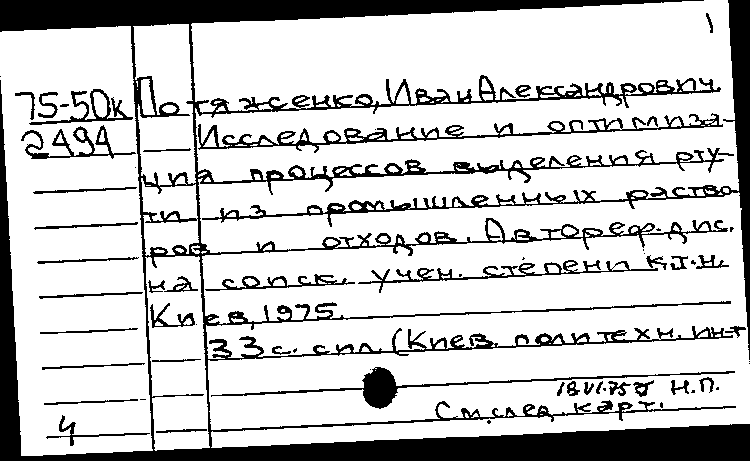 1
75-50к Потяженко, Иван Александрович.
2494 Исследование и оптимиза-
ция процессов выделения рту-
ти из промышленных раство-
ров и отходов. Автореф. дис.
на соиск. учен. степени к.т.н.
Киев, 1975.
33 с. с ил. (Киев. политехн. ин-т
18 VI.75 Н.П.
4 См. след. карт.